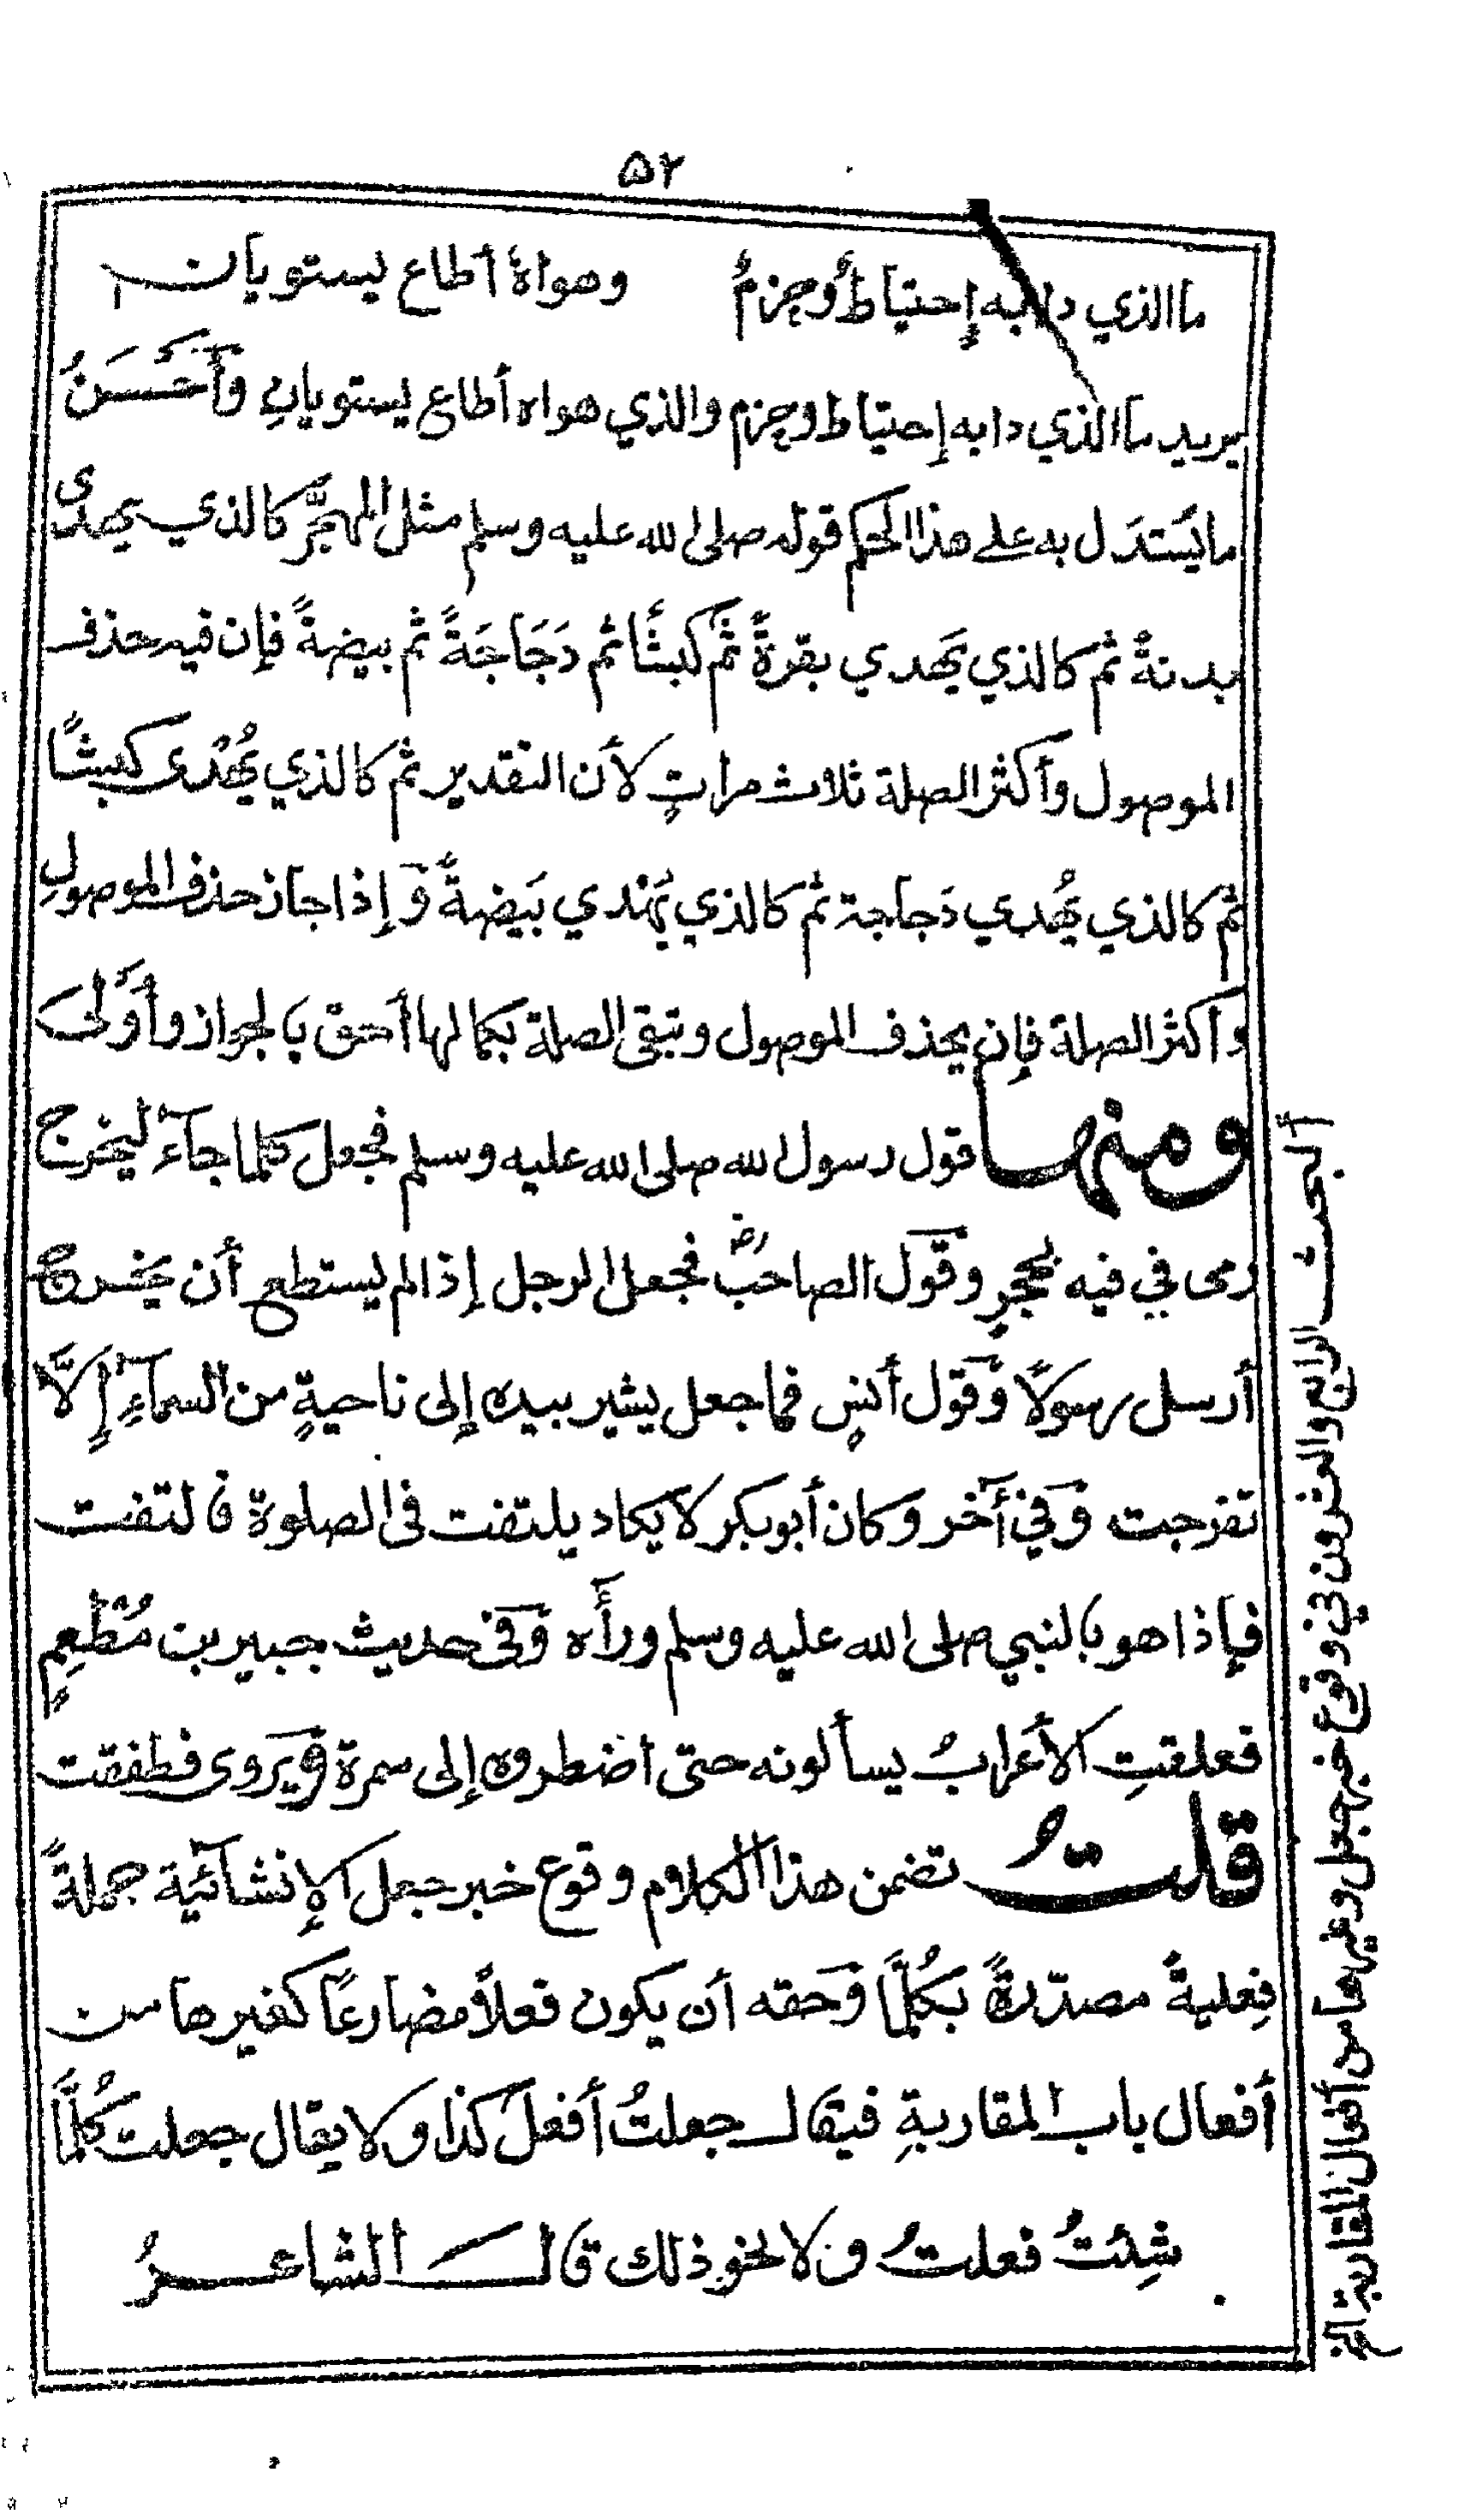 ٥٢
ما الذي دابه إحتياط وحزم وهواهٔ أطاع يستويان
يريد ما الذي دابه إحتياط وحزم والذي هواه أطاع يستويانِ وأَحْسَنُ
ما يَستدَل به على هذا الحكم قوله صلى الله عليه وسلم مثل المهجَّر كالذي يهدى
بدنةً ثم كالذي يَهدي بقرةً ثم كبشًا ثم دَجَاجَةً ثم بيضةً فإن فيه حذف
الموصول وأكثر الصلة ثلاث مراتٍ لأن التقدير ثم كالذي يُهْدى كبشًا
ثم كالذي يُهدي دَجاجة ثم كالذي يُهْدي بَيضةً وَإذا جاز حذف الموصولِ
وأكثر الصلة فإن يحذف الموصول وتبقى الصلة بكمالها أحق بالجواز وأَوْلىٰ
ومنها قول رسول الله صلى الله عليه وسلم فجعل كلما جآءَ ليخرج
رمى في فيه بحجرٍ وقَول الصاحبؓ فجعل الرجل إذا لم يستطع أن يخرج
أرسل رسولًا وَقول أنسٍ فما جعل يشير بيده إلى ناحيةٍ من السمآءِ إِلَّا
تفرجت وَفي آخر وكان أبو بكر لا يكاد يلتفت فى الصلوة فالتفت
فإذا هو بالنبي صلى الله عليه وسلم ورأَه وَفى حديث جبير بن مُطْعِمٍ
فعلقتِ الأعرابُ يسألونه حتى اضطروه إلى سمرة وَيروى فطفقت
قلتُ تضمن هذا الكلام وقوع خبر جعل الإنشآئية جملةً
فِعليةً مصدّرةً بكُلَّمَا وَحقه أن يكون فعلاً مضارعًا كغيرها من
أفعال باب المقاربةِ فيقال جعلتُ أفعلَ كذا ولا يقال جعلت كُلمَّا
شِئتُ فعلتُ ولا نحو ذلك قال الشاعرُ
البحث الرابع والعشرون في وقوع خبر جعل وغيرها من أفعال المقاربة الخ